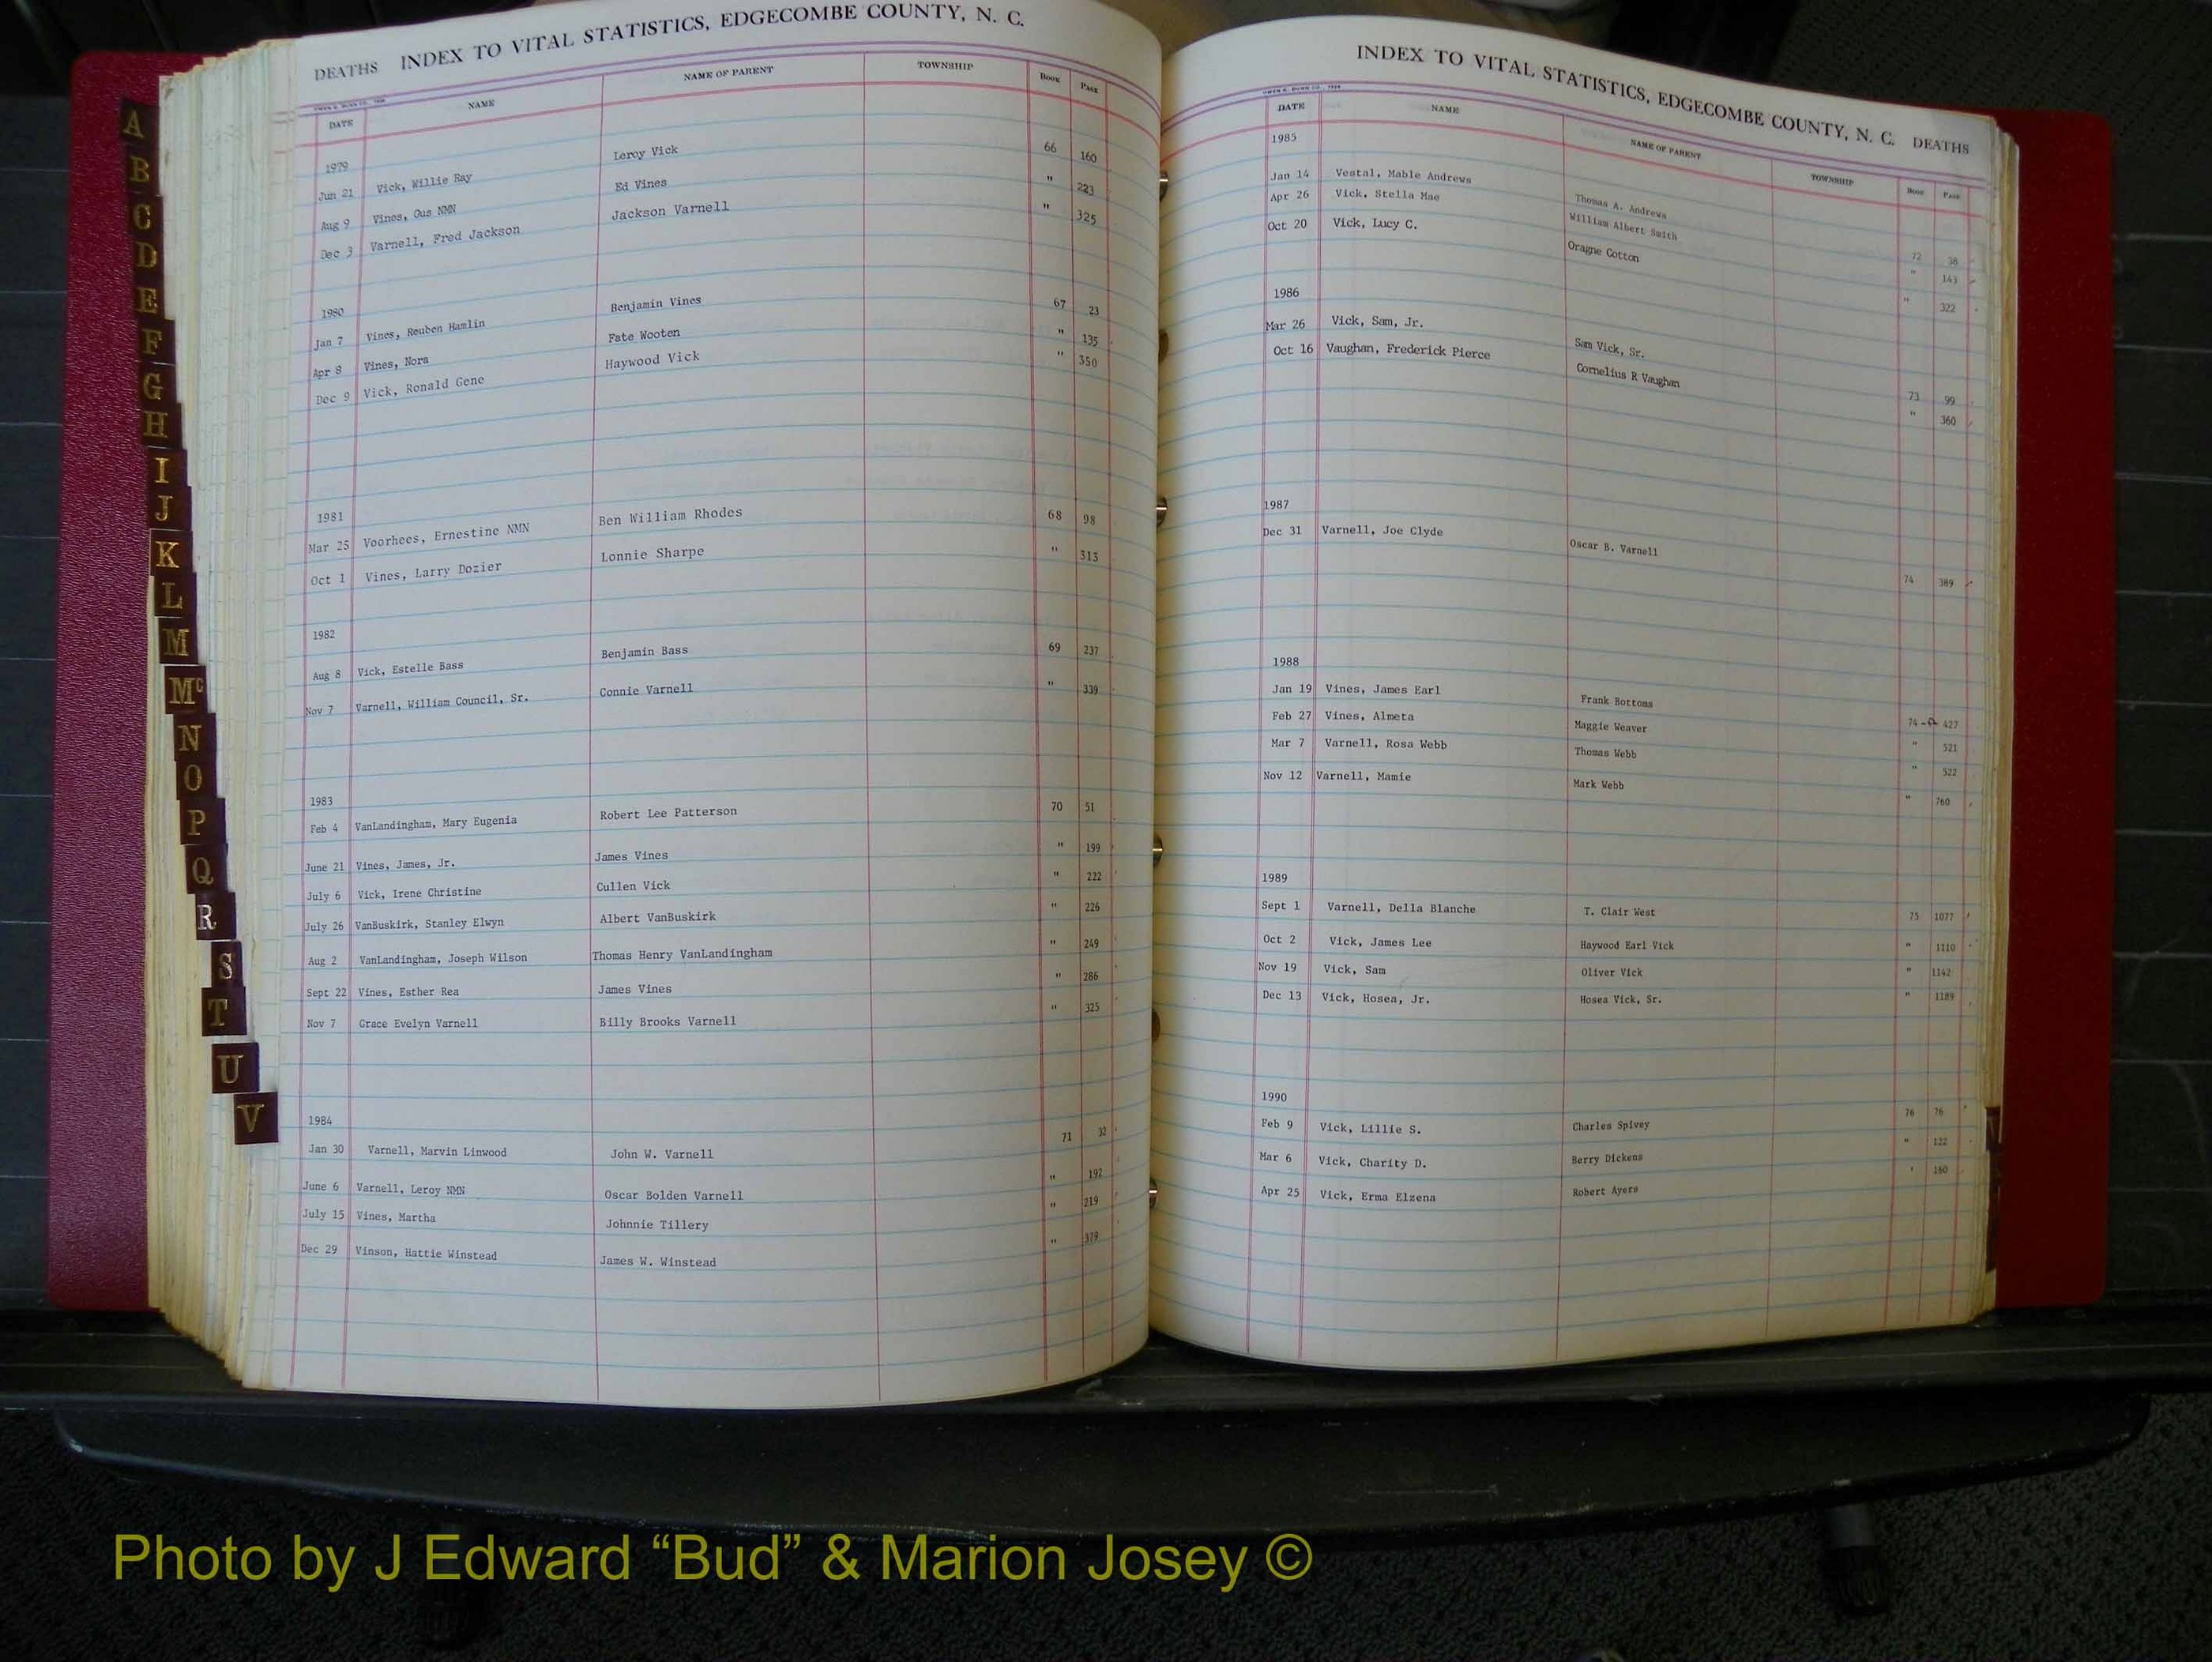 DEATHS INDEX TO VITAL STATISTICS, EDGECOMBE COUNTY, N. C.
DATE NAME NAME OF PARENT TOWNSHIP BOOK PAGE
1979
Jun 21 Vick, Willie Ray Leroy Vick 66 160
Aug 9 Vines, Gus NMN Ed Vines " 223
Dec 3 Varnell, Fred Jackson Jackson Varnell " 325
1980
Jan 7 Vines, Reuben Hamlin Benjamin Vines 67 23
Apr 8 Vines, Nora Fate Wooten " 135
Dec 9 Vick, Ronald Gene Haywood Vick " 350
1981
Mar 25 Voorhees, Ernestine NMN Ben William Rhodes 68 98
Oct 1 Vines, Larry Dozier Lonnie Sharpe " 313
1982
Aug 8 Vick, Estelle Bass Benjamin Bass 69 237
Nov 7 Varnell, William Council, Sr. Connie Varnell " 339
1983
Feb 4 VanLandingham, Mary Eugenia Robert Lee Patterson 70 51
June 21 Vines, James, Jr. James Vines " 199
July 6 Vick, Irene Christine Cullen Vick " 222
July 26 VanBuskirk, Stanley Elwyn Albert VanBuskirk " 226
Aug 2 VanLandingham, Joseph Wilson Thomas Henry VanLandingham " 249
Sept 22 Vines, Esther Rea James Vines " 286
Nov 7 Grace Evelyn Varnell Billy Brooks Varnell " 325
1984
Jan 30 Varnell, Marvin Linwood John W. Varnell 71 32
June 6 Varnell, Leroy NMN Oscar Bolden Varnell " 192
July 15 Vines, Martha Johnnie Tillery " 219
Dec 29 Vinson, Hattie Winstead James W. Winstead " 379
INDEX TO VITAL STATISTICS, EDGECOMBE COUNTY, N. C. DEATHS
DATE NAME NAME OF PARENT TOWNSHIP BOOK PAGE
1985
Jan 14 Vestal, Mable Andrews Thomas A. Andrews 72 38
Apr 26 Vick, Stella Mae William Albert Smith " 143
Oct 20 Vick, Lucy C. Oragne Cotton " 322
1986
Mar 26 Vick, Sam, Jr. Sam Vick, Sr. 73 99
Oct 16 Vaughan, Frederick Pierce Cornelius R Vaughan " 360
1987
Dec 31 Varnell, Joe Clyde Oscar B. Varnell 74 389
1988
Jan 19 Vines, James Earl Frank Bottoms 74-A 427
Feb 27 Vines, Almeta Maggie Weaver " 521
Mar 7 Varnell, Rosa Webb Thomas Webb " 522
Nov 12 Varnell, Mamie Mark Webb " 760
1989
Sept 1 Varnell, Della Blanche T. Clair West 75 1077
Oct 2 Vick, James Lee Haywood Earl Vick " 1110
Nov 19 Vick, Sam Oliver Vick " 1142
Dec 13 Vick, Hosea, Jr. Hosea Vick, Sr. " 1189
1990
Feb 9 Vick, Lillie S. Charles Spivey 76 76
Mar 6 Vick, Charity D. Berry Dickens " 122
Apr 25 Vick, Erma Elzena Robert Ayers ' 160
A
B
C
D
E
F
G
H
I
J
K
L
M
Mc
N
O
P
Q
R
S
T
U
V
Photo by J Edward “Bud” & Marion Josey ©